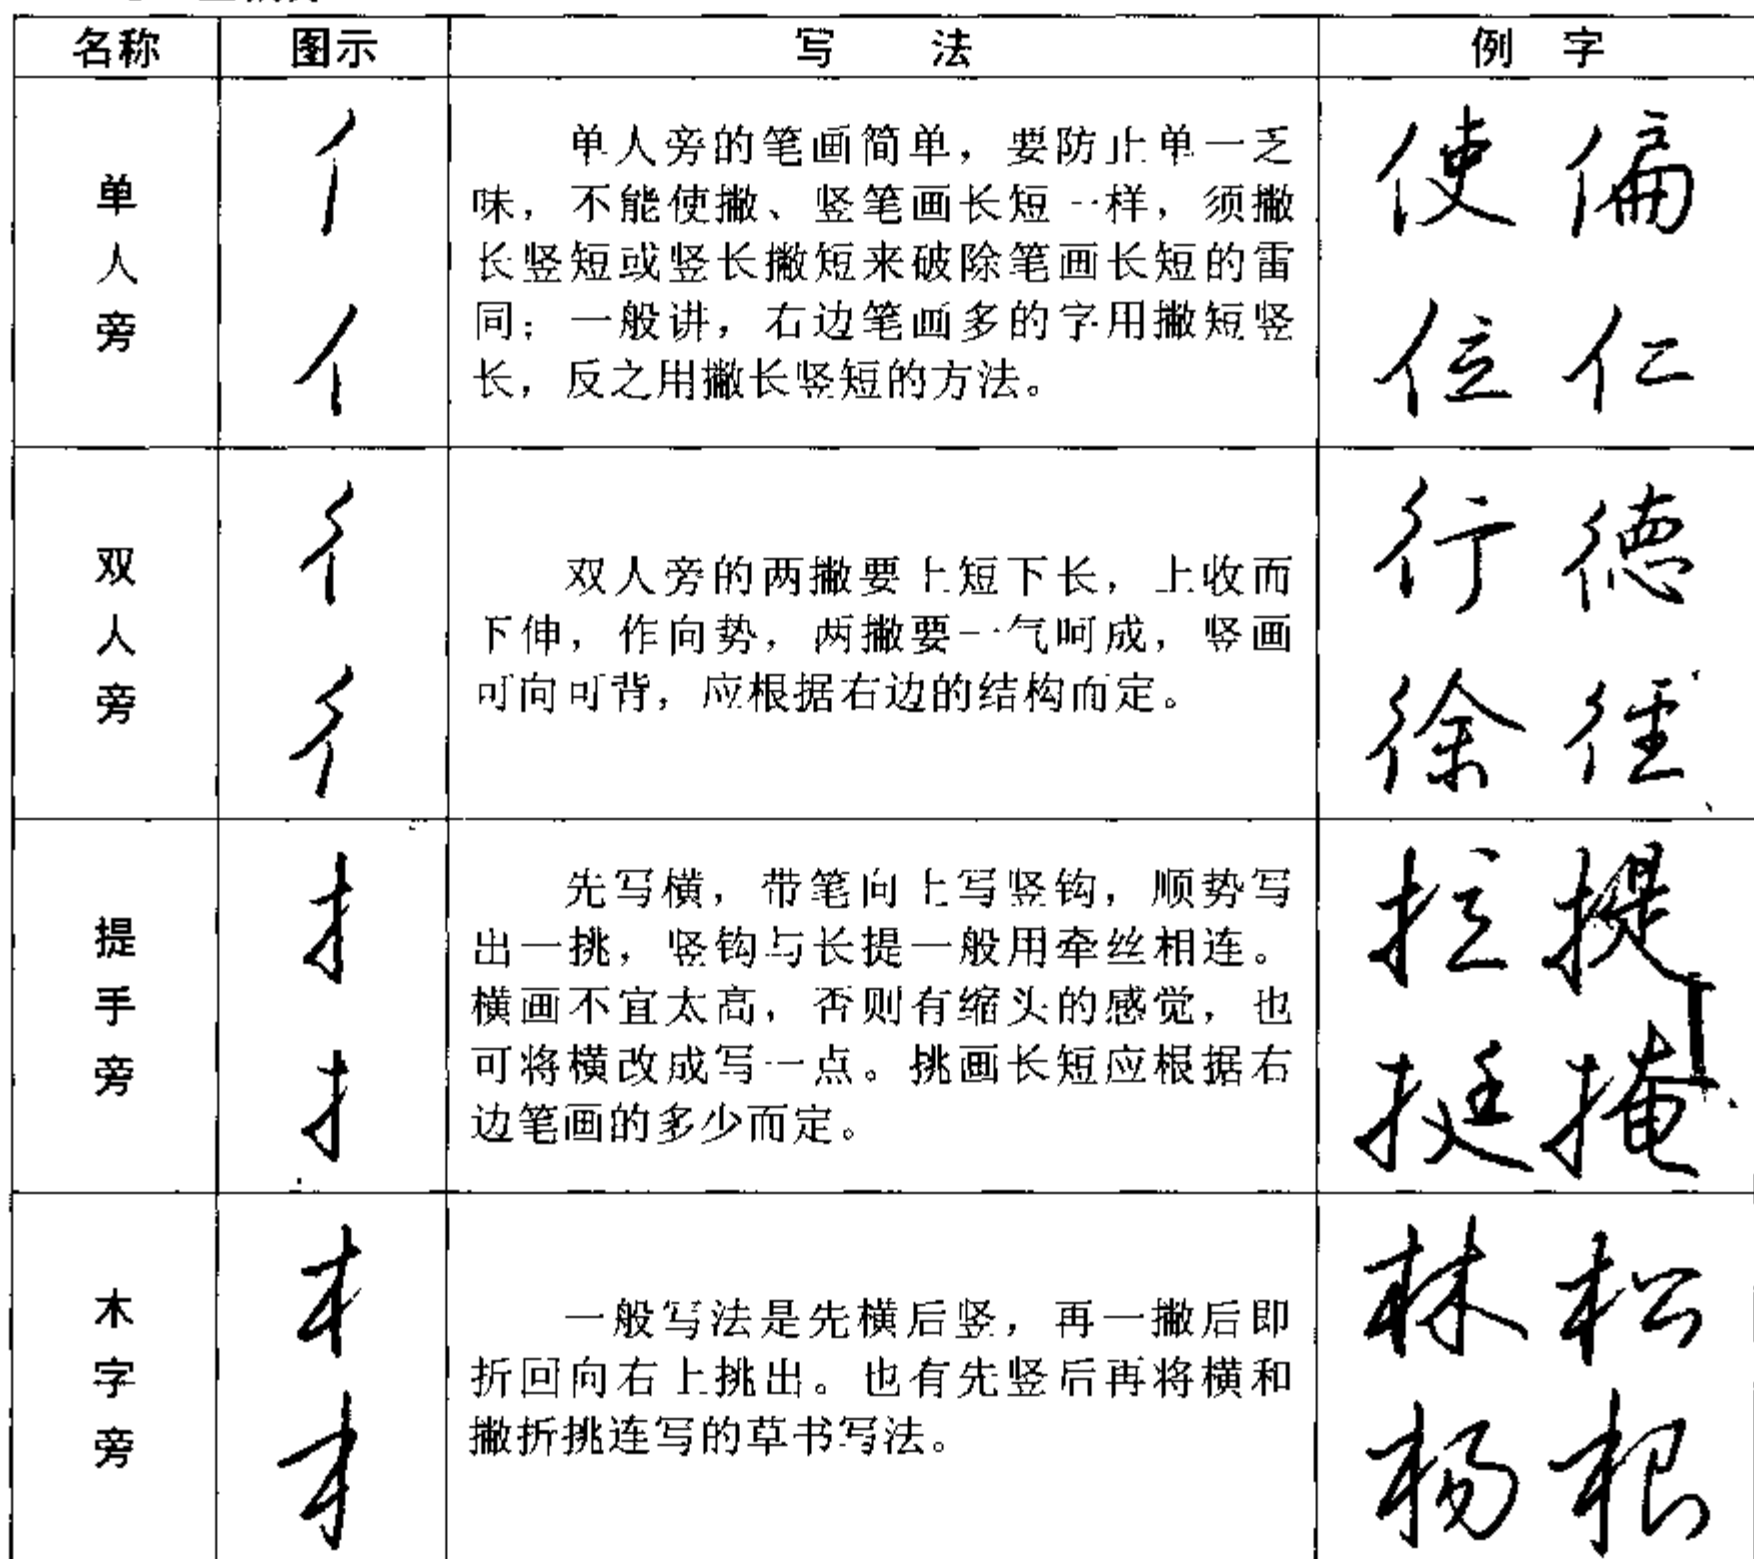 名称 图示 写 法 例 字
单人旁
亻
亻
单人旁的笔画简单，要防止单一乏
味，不能使撇、竖笔画长短一样，须撇
长竖短或竖长撇短来破除笔画长短的雷
同；一般讲，右边笔画多的字用撇短竖
长，反之用撇长竖短的方法。
使 偏
位 仁
双人旁
彳
彳
双人旁的两撇要上短下长，上收而
下伸，作向势，两撇要一气呵成，竖画
可向可背，应根据右边的结构而定。
行 德
徐 径
提手旁
扌
扌
先写横，带笔向上写竖钩，顺势写
出一挑，竖钩与长提一般用牵丝相连。
横画不宜太高，否则有缩头的感觉，也
可将横改成写一点。挑画长短应根据右
边笔画的多少而定。
拉 提
挺 掩
木字旁
木
木
一般写法是先横后竖，再一撇后即
折回向右上挑出。也有先竖后再将横和
撇折挑连写的草书写法。
林 松
杨 根